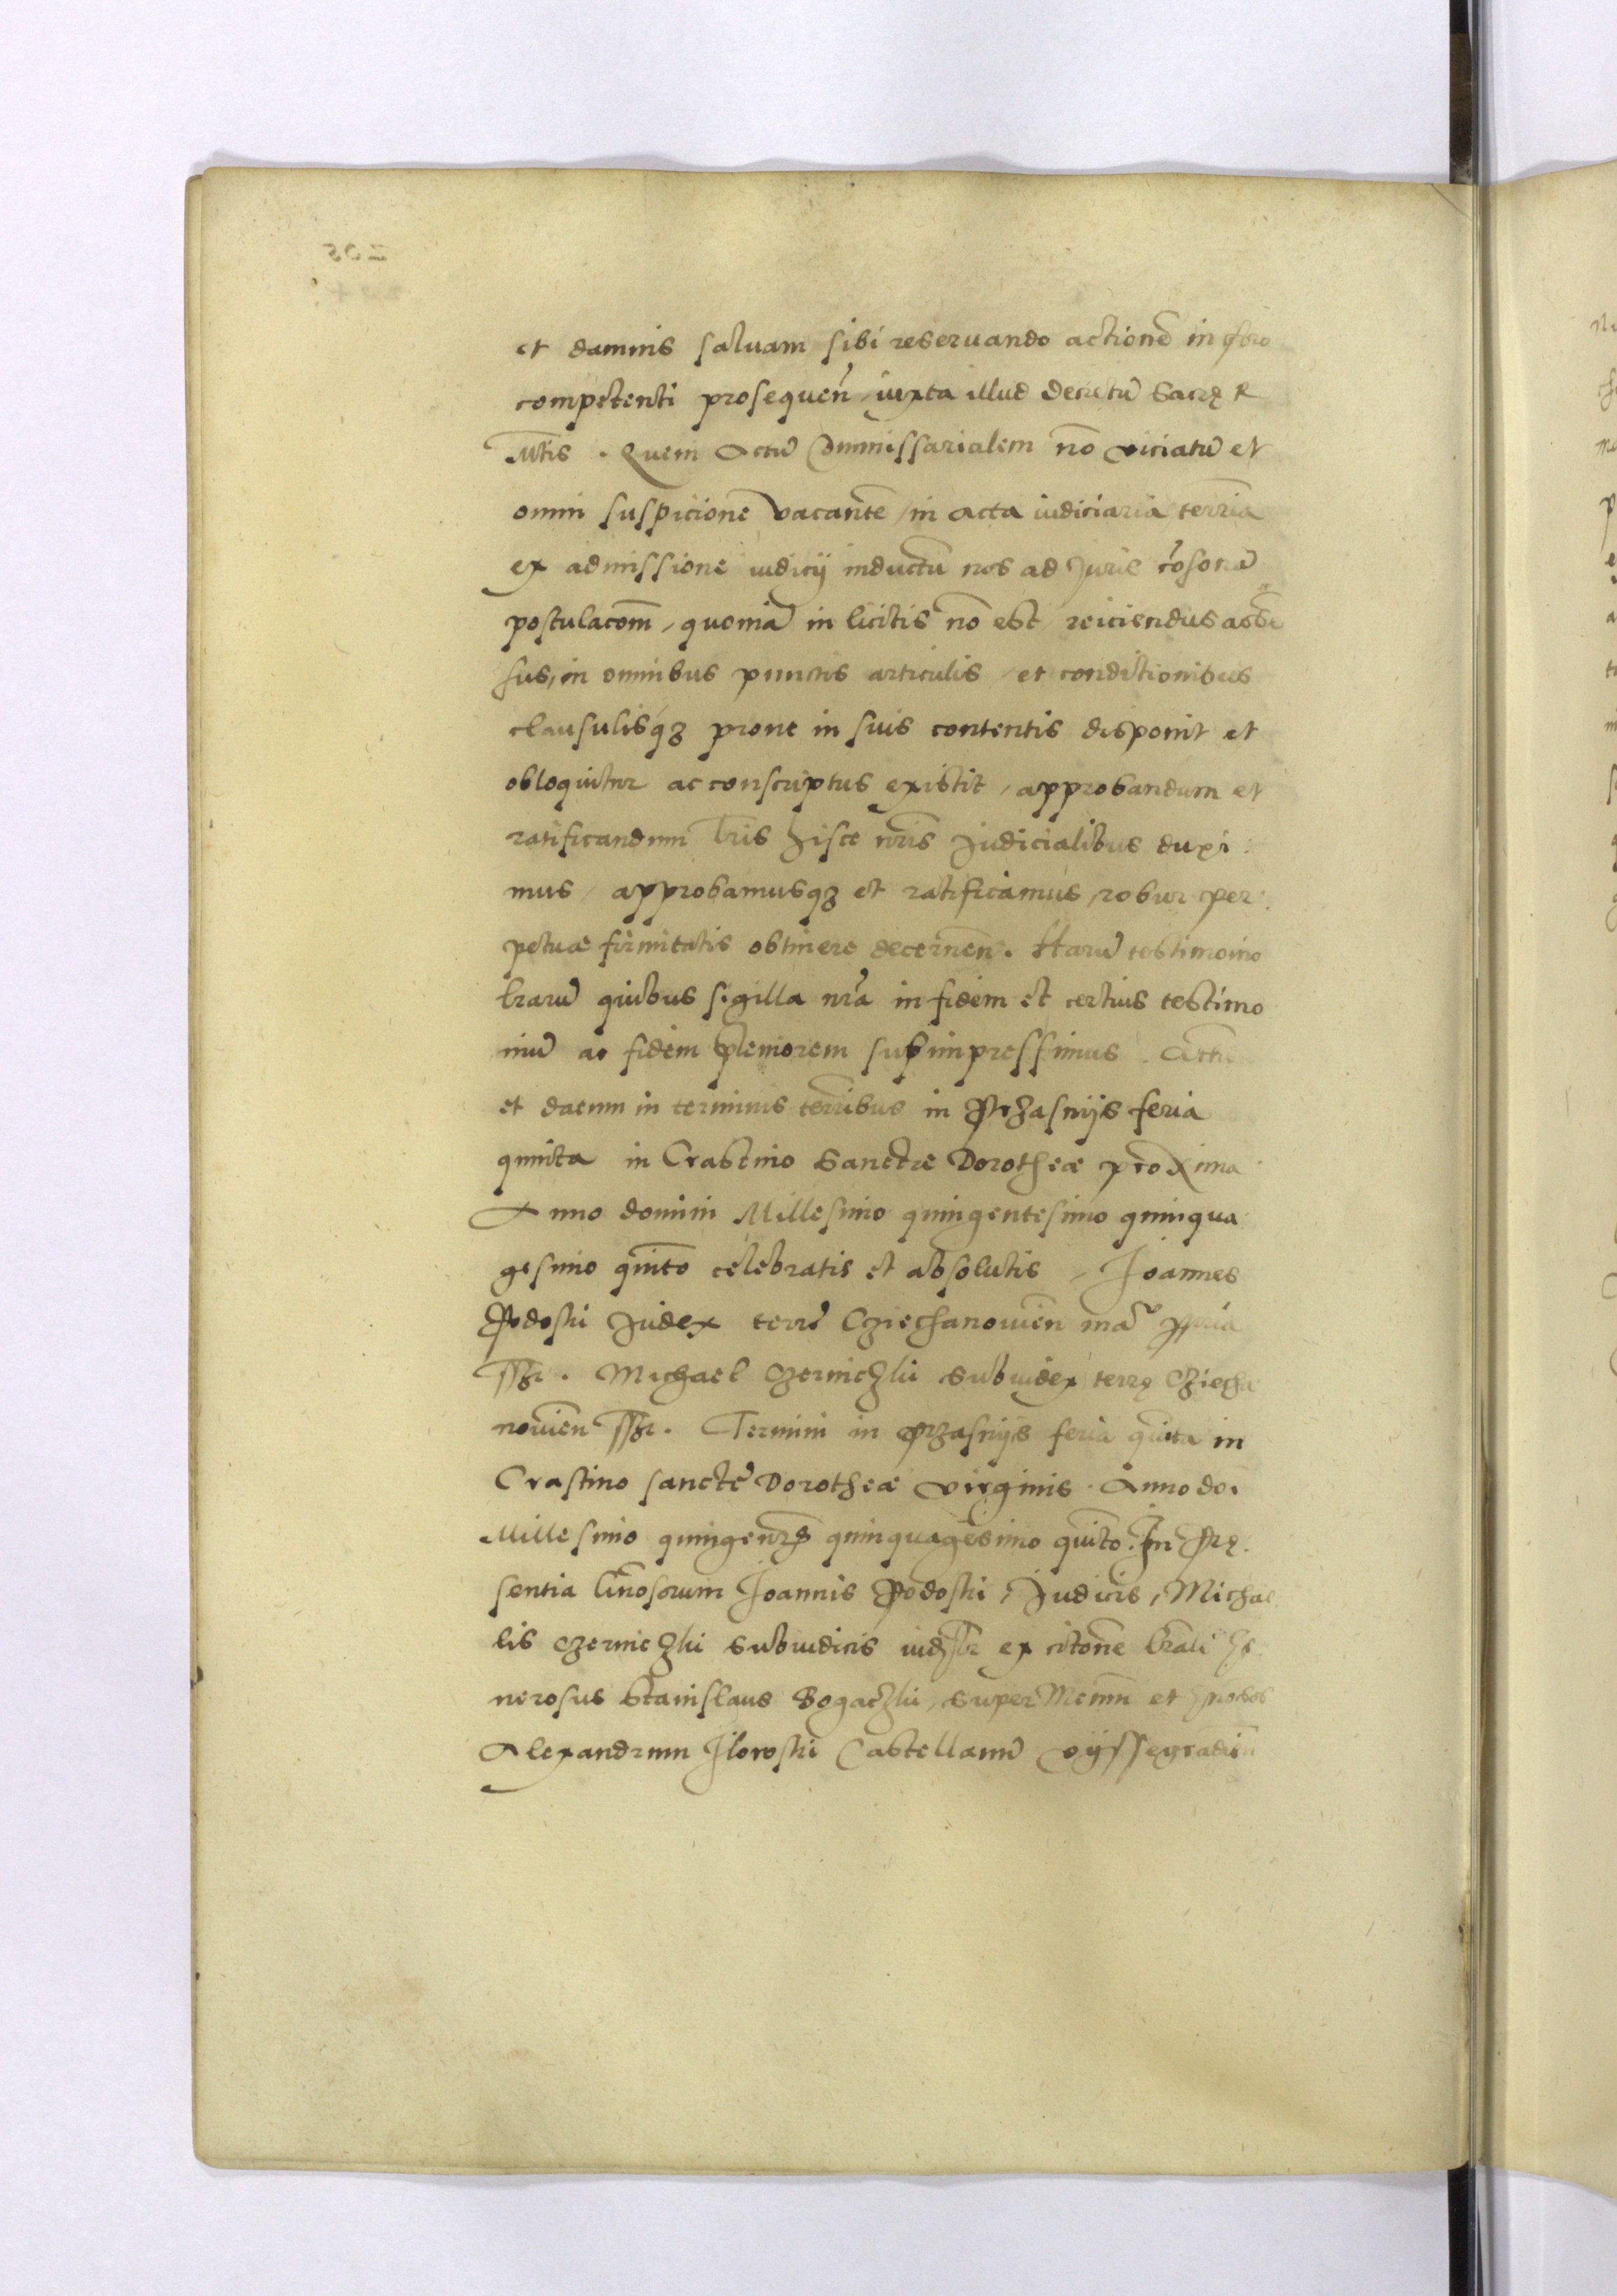 et damnis saluam sibi reseruando actionē in foro
competenti prosequeñ, iuxta illud decretū Sacrę R
Mtis. Quem Actū Commissarialem nō viciatū et
omni suspicione vacantē, in acta iudiciaria terrīa
ex admissione iudicij inductū nos ad Juris cōsonā
postulacom̄, quoniā in licitis nō est reiiciendus assē
sus, in omnibus punctis articulis, et conditionibus
clausulisq3 prout in suis contentis disponit et
obloquitur ac conscriptus existit, approbandum et
ratificandum lr̄is hisce nr̄is Judicialibus duxi:
mus, approbamusq3 et ratificamus, robur per:
petuæ firmitatis obtinere decerneñ. Harū testimonio
lr̄arū quibus sigilla nr̄a in fidem et certius testimo
niū ac fidem pleniorem subimpressimus. Actū
et datum in terminis terr̄ibus in Przasnijs feria
quinta in Crastino Sanctæ Dorotheæ proxima
Anno domini Millesimo quingentesimo quinqua
gesimo quīto celebratis et absolutis, Joannes
Podoski Judex terrę Cziechanowień mā ppria
sszt. Michael Czernichki Subiudex terrę Cziecha
nowień sszt. Termini in Przasnijs feria quīta in
Crastino sanctę Dorotheæ virginis. Anno do:
Millesimo quingent° quinquagesimo quīto. In Prę:
sentia Gn̄osorum Joannis Podoski, Judicis, Michae
lis Czernichki Subiudicis ex citatōne lr̄ali Ge
nerosus Stanislaus Bogaczki, super Mcūm et Gn̄osos
Alexandrum Jlowski Castellanū Vijssegradien̄